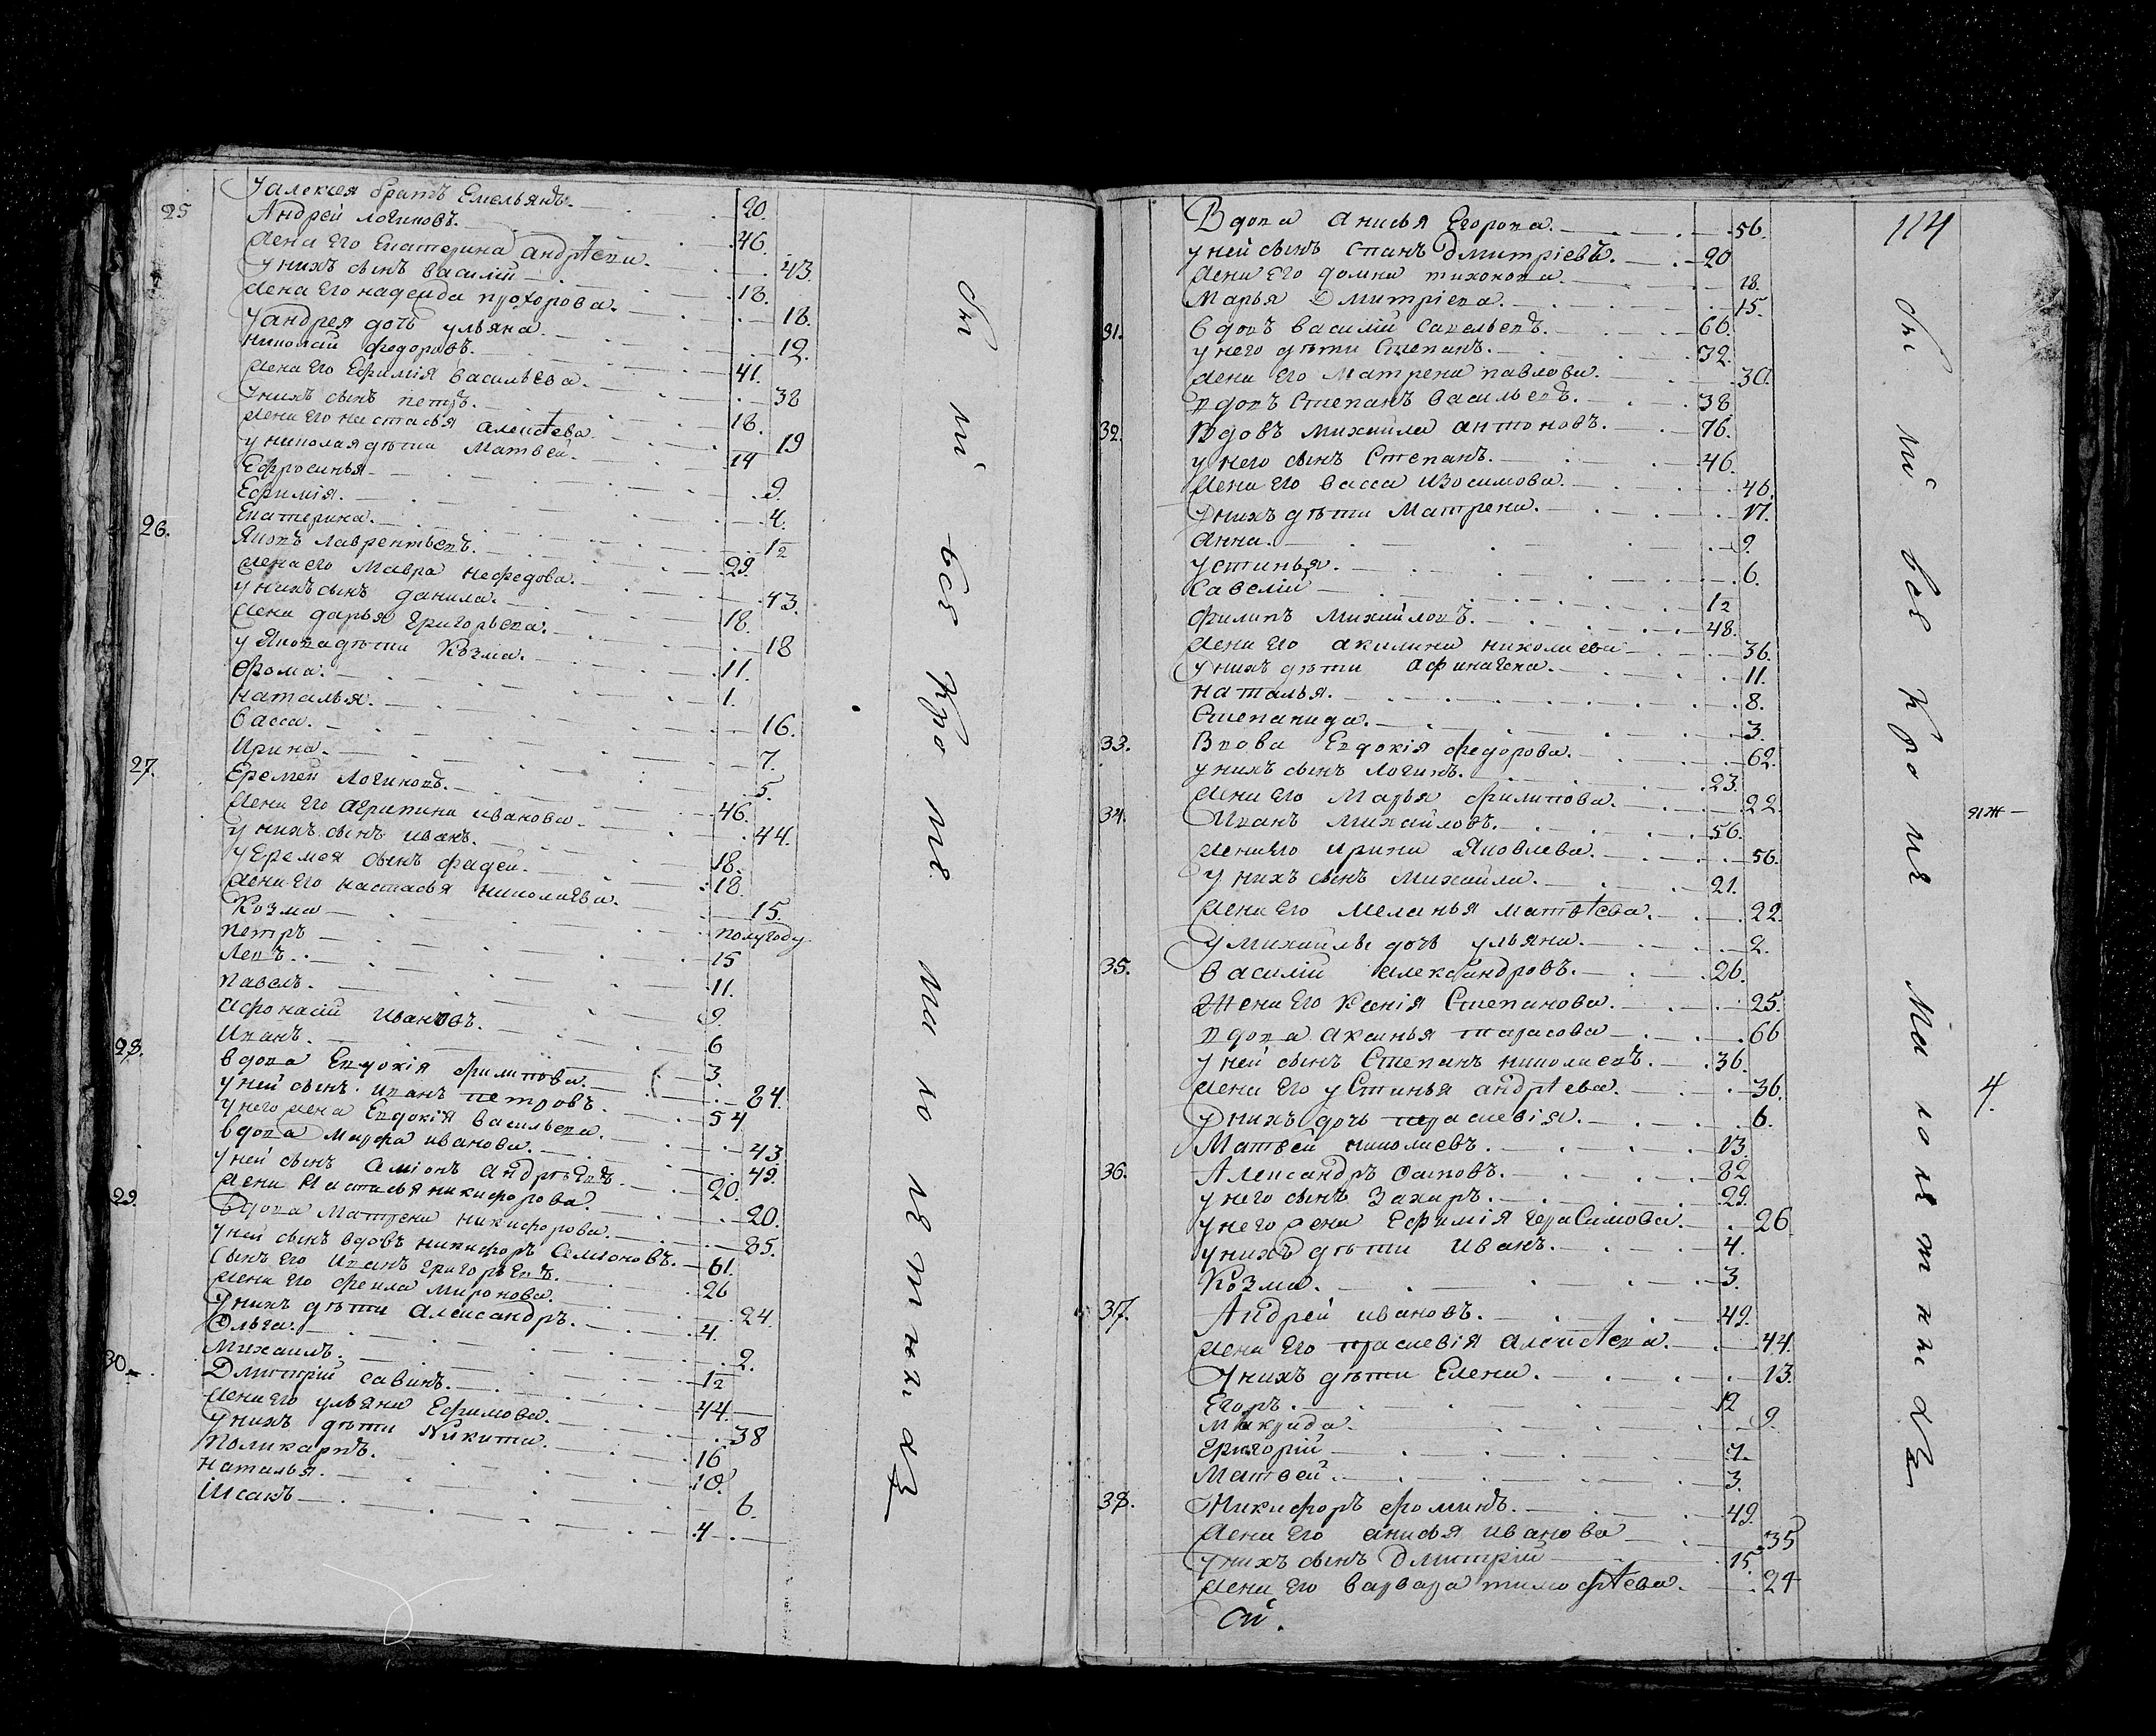 У алексея братъ Емельянъ. 20.
25 Андрей логиновъ. 46.
жена Его Екатерина андрѣева. 43.
у нихъ сынъ василий 18.
жена Его надежда прохорова. 18.
у андрея дочь ульяна. 12.
николай федоровъ. 41.
жена Его Ефимія васильева. 38
у нихъ сынъ петръ. 18.
жена Его настасья алексѣева. 19
у николая дѣти Матвей. 14
Ефросинья. 9.
Ефимія. 4.
Екатерина. 1/2
26. Яковъ лаврентьевъ. 29.
жена его Мавра нефедова. 43.
у нихъ сынъ данила. 18.
жена дарья григорьева. 18
у Якова дѣти Козма. 11.
Фома. 1.
наталья. 16.
васса. 7.
Ирина. 5.
27. Еремей логиновъ. 46.
жена Его Агрипина иванова. 44.
у нихъ сынъ иванъ. 18.
у Еремея сынъ фадей. 18
жена Его настасья николаева. 15.
Козма полугоду
петръ 15
Левъ. 11.
павелъ. 9.
афонасий ивановъ. 6
Иванъ. 3.
28. вдова Евдокія филипова. 84.
у ней сынъ иванъ петровъ. 54
у него жена Евдокія васильева. 43.
вдова Марфа иванова. 49.
у ней сынъ Семіонъ андрѣевъ. 20.
жена Настасья никифорова. 20.
29. Вдова Матрена никифорова. 85.
у ней сынъ вдовъ никифоръ Семионовъ. 61.
сынъ Его Иванъ григорьевъ. 26
жена Его фекла миронова. 24.
у нихъ дѣти александръ. 4.
Ольга. 2.
Михаилъ. 1/2
30. Дмитрий савинъ. 44.
жена Его ульяна Ефимова. 38
у нихъ дѣти Никита. 16
Поликарпъ. 10.
наталья. 6.
Исакъ 4
сы ти все кро ме ма ло лет ных
114
Вдова анисья Егорова. 56.
у ней сынъ Дмитріевъ. 20
жена Его домна тихонова. 18.
Марья Дмитріева. 15.
31. вдовъ василий савельевъ. 66.
у него дѣти Степанъ. 32.
жена Его Матрена павлова. 30.
вдовъ Степанъ васильевъ. 38
32. Вдовъ михаила антоновъ. 76.
у него сынъ Степанъ. 46.
жена Его васса изосимова. 46.
у нихъ дѣти Матрена. 17.
анна. 9.
устинья. 6.
савелий 1/2
филипъ михайловъ. 48.
жена Его акилина николаева 36.
у нихъ дѣти 11.
наталья. 8.
Степанида. 3.
33. Вдова Евдокія федорова. 62.
у нихъ сынъ логинъ. 23.
жена Его Марья филипова. 22.
34. Иванъ михайловъ. 56.
жена Его ирина Яковлева. 56.
у нихъ сынъ михаила. 21.
жена Его меланья матвѣева. 22.
у михаилы дочь ульяна. 2.
35. василий александровъ. 26.
Жена Его Ксенія Степанова. 25.
вдова аксинья тарасова 66
у ней сынъ Степанъ николаевъ. 36.
жена Его устинья андрѣева. 36.
у нихъ дочь праскевія. 6.
Матвей николаевъ. 13.
36. Александръ осиповъ. 82
у него сынъ Захаръ. 29.
у него жена Ефимія герасимова. 26
у нихъ дѣти иванъ. 4.
Козма. 3.
37. Андрей ивановъ. 49.
жена Его праскевія алексѣева. 44.
у нихъ дѣти Елена. 13.
Егоръ. 12
Макрида 9.
григорий 7.
Матвей. 3.
38. Никифоръ фоминъ. 49.
жена Его анисья иванова 35
у нихъ сынъ Дмитрий 15.
жена Его варвара тимофѣева. 24
сы ти все кро ме ма ло лет ных
4.